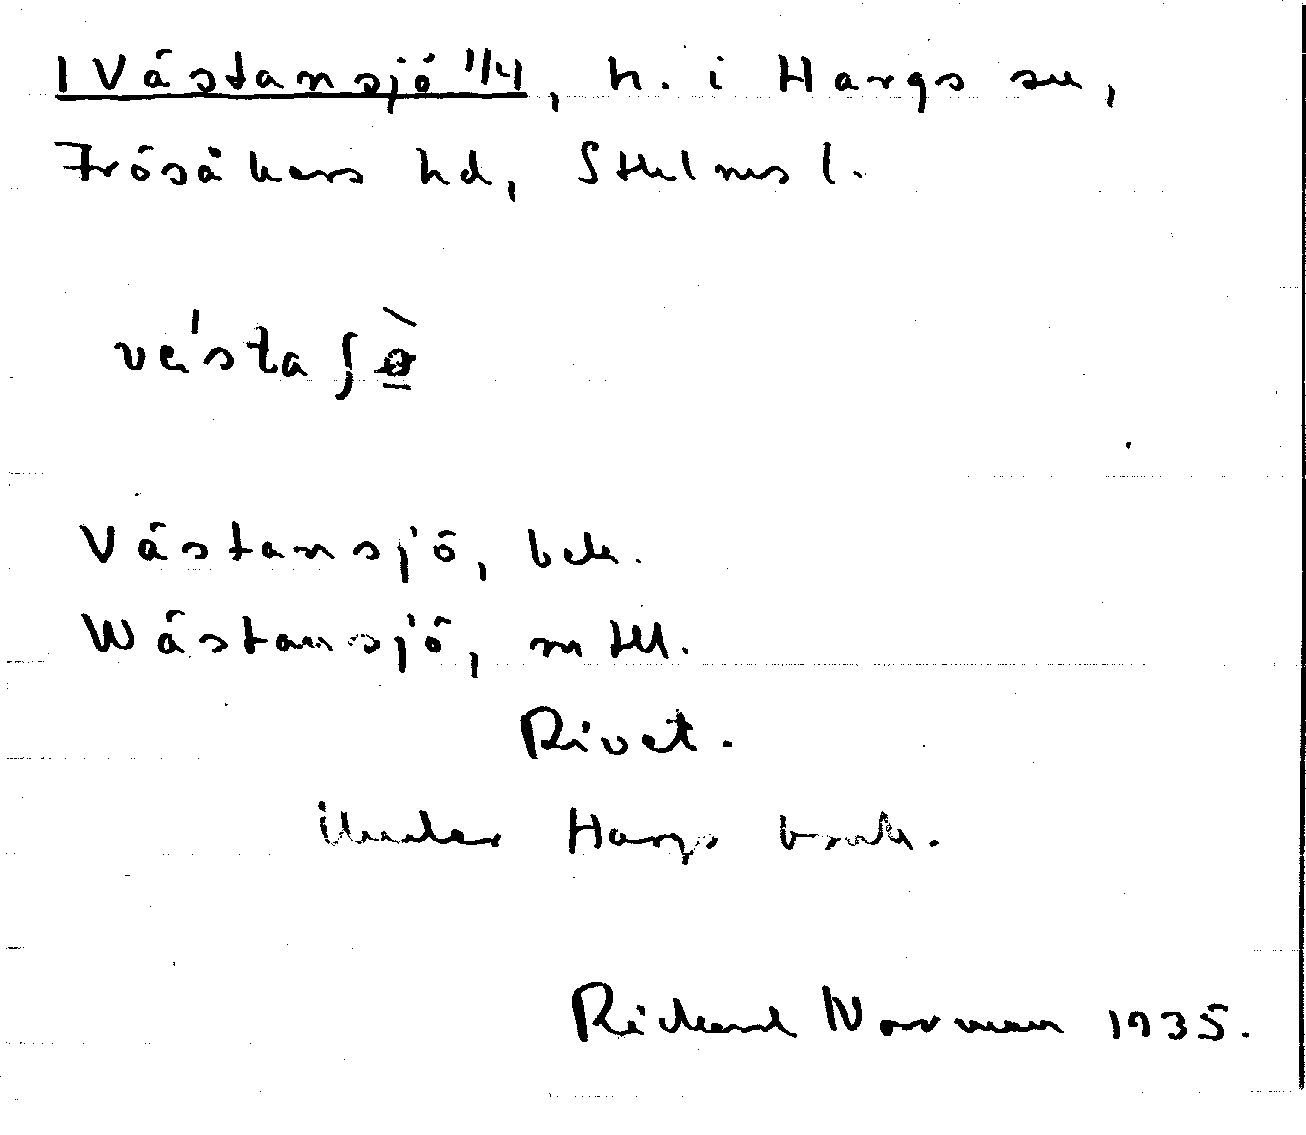 1 Västansjö 1/4, h. i Hargs sn,
Frösåkers hd, Sthlms l.
vä́sta ʃö̀
Västansjö, bek.
Wästansjö, mtll.
Rivet.
Under Hargs bruk.
Richard Norman 1935.